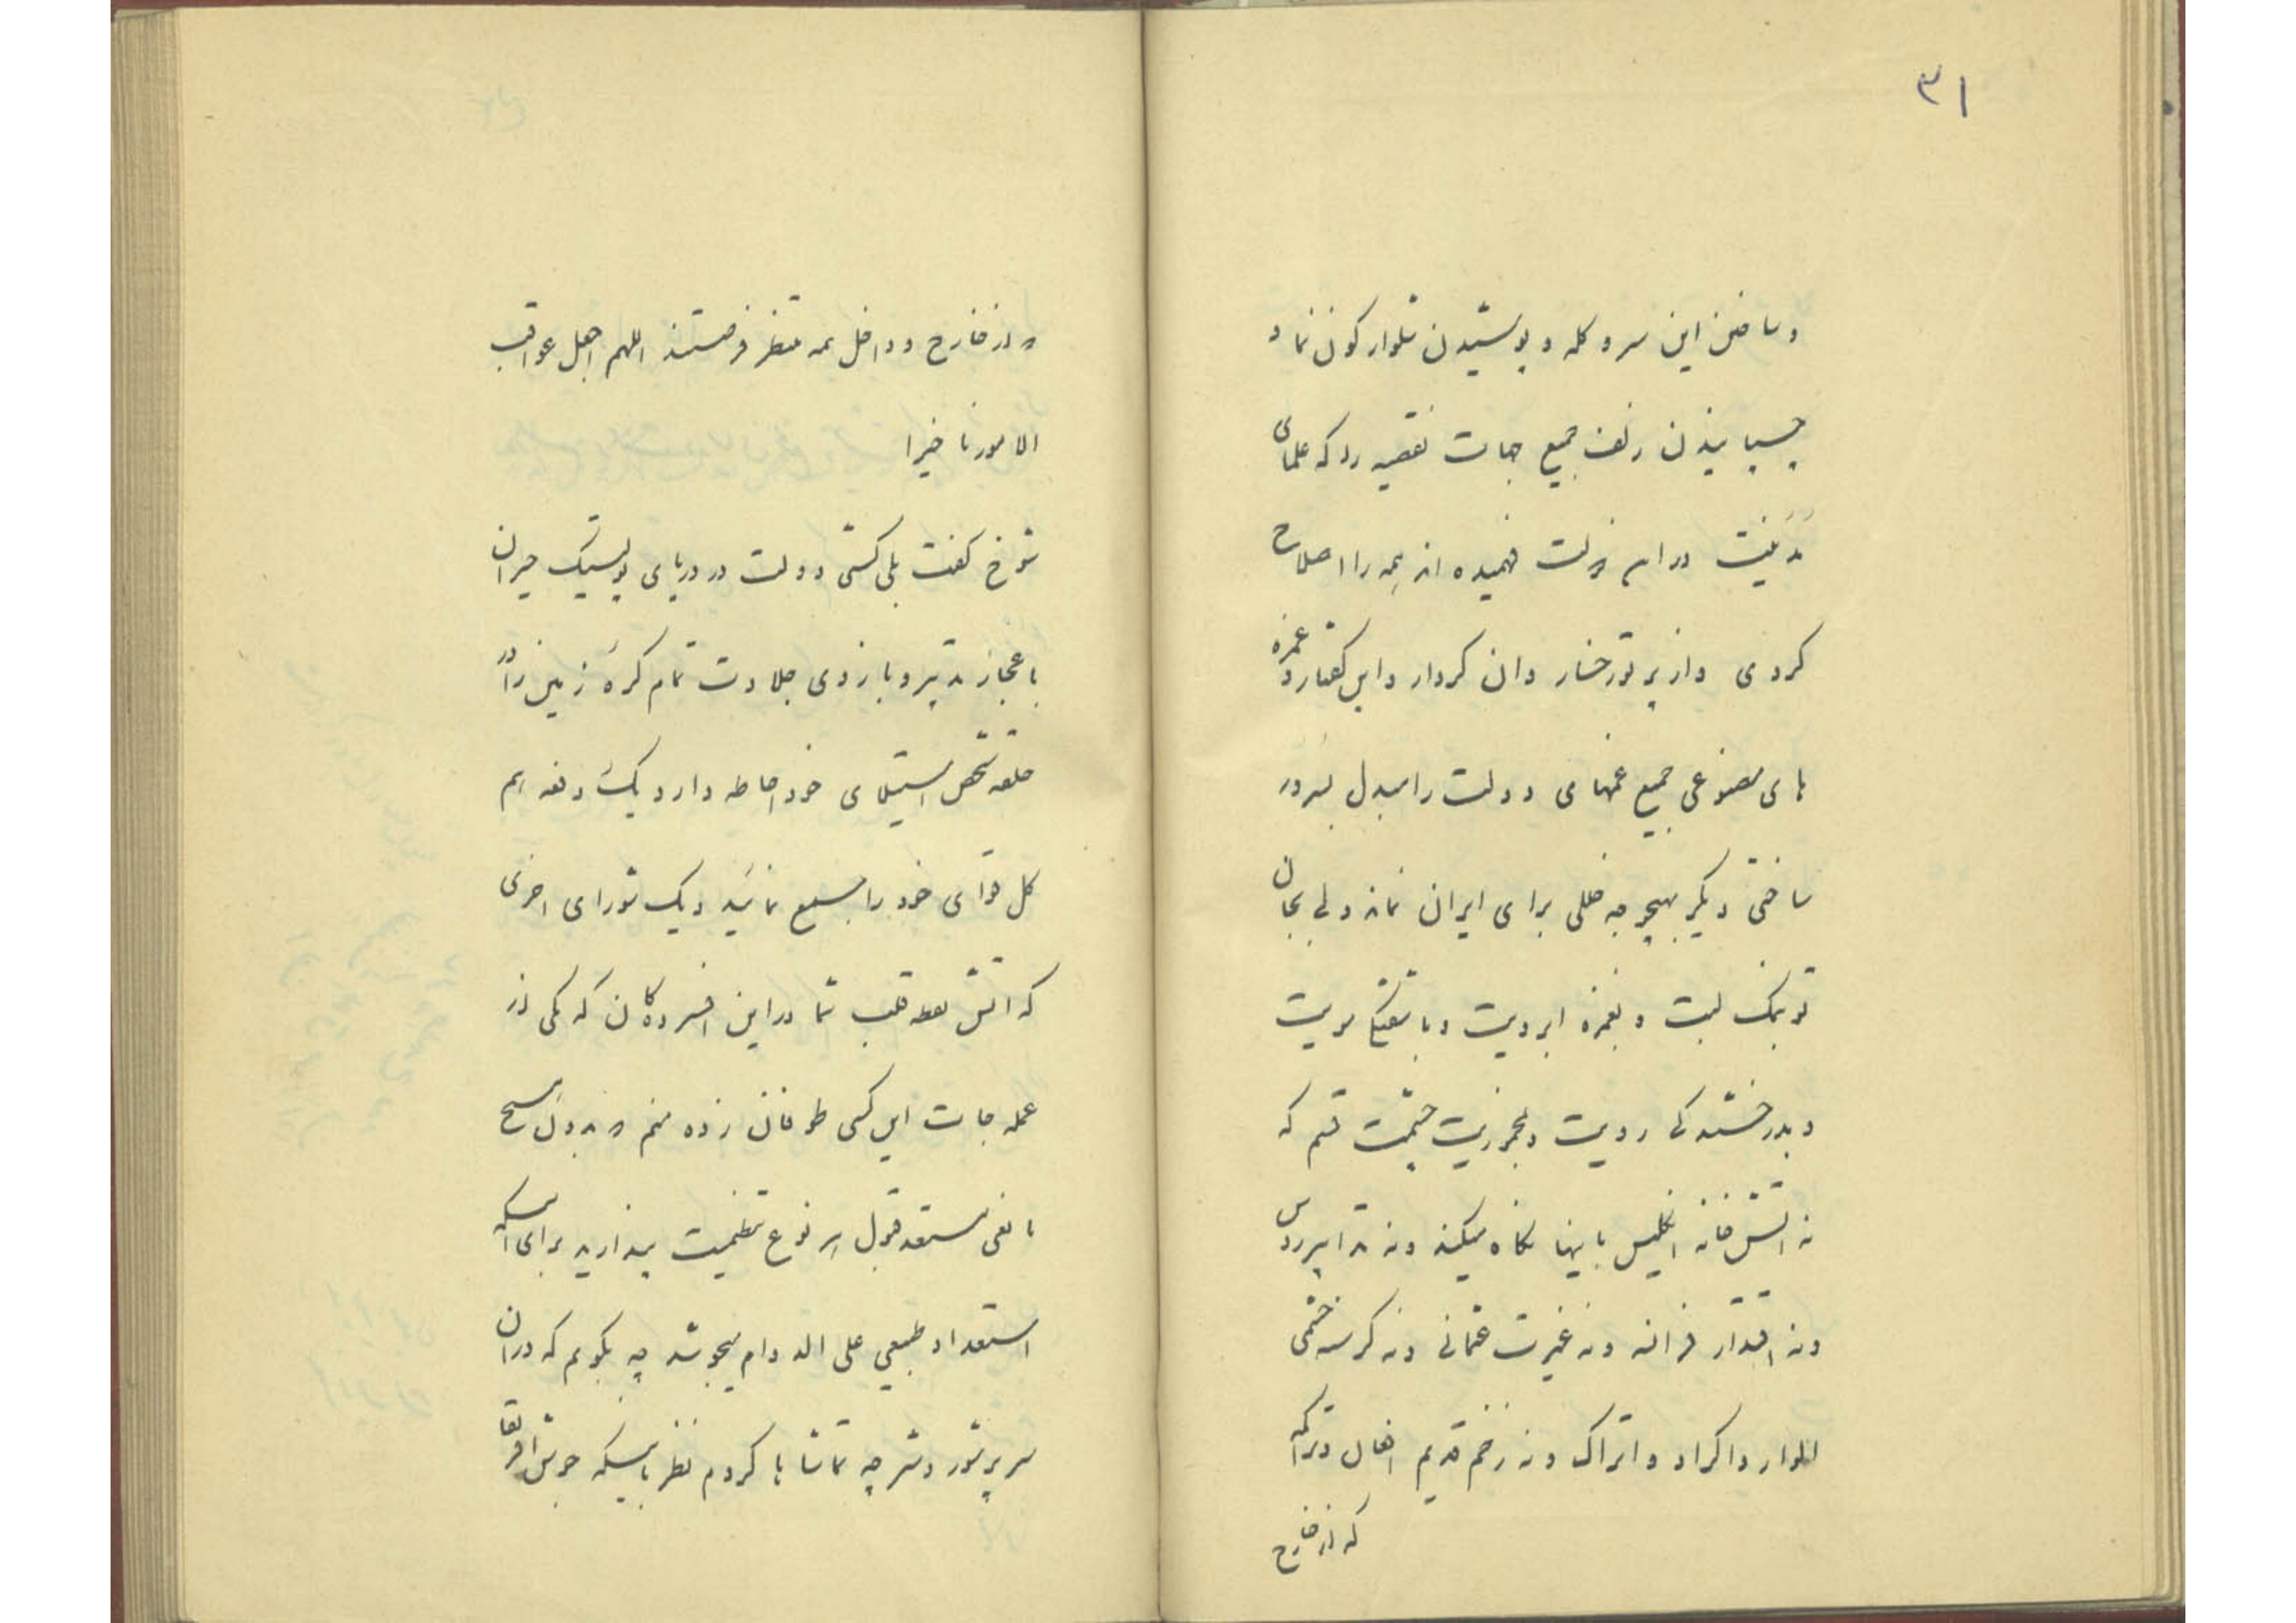 ۳۱
و ساختن این سر و کله و پوشیدن شلوار کون نما و
چسپانیدن زلف جمیع جهات نقصیه را که علمای
مدنیت در این دولت فهمیده اند همه را اصلاح
کردی و از پرتو رخسار و ان کردار و این گفتار و غمزه
های مصنوعی جمیع غمهای دولت را مبدل بسرور
ساختی دیگر بهیچوجه خللی برای ایران نماند ولی بجان
تو بنمک لبت و بغمزه ابرویت و با مویت
و بدرخشندگی رویت و چشمت قسم که
نه اتش خانه انگلیس باینها نگاه میکند و نه تدابیر روس
و نه اقتدار فرانسه و نه غیرت عثمانی و نه گرسنه چشمی
الوار و اکراد و اتراک و نه زخم قدیم افغان و تراکمه
که از خارج
از خارج و داخل همه منتظر فرصتند اللهم اجعل عواقب
الامورنا خیرا
شوخ گفت بلی کشتی دولت در دریای پولیتیک حیران
باعجاز تدبیر و بازوی جلادت تمام کره زمین را در
حلقه شخص استیلای خود احاطه دارد یک دفعه هم
کل قوای خود را جمع نمائید و یک شورای اخری
که اتش نقطه قلب شما در این افسردگان که یکی از
عمله جات این کشی طوفان زده منم
بالفی مستعد قبول هر نوع عظمیت پندارید برای اینکه
استعداد طبیعی علی الدوام میجوشد چه بگویم که در ان
سر پر شور و شر چه تماشا ها کردم نظر باینکه جوش